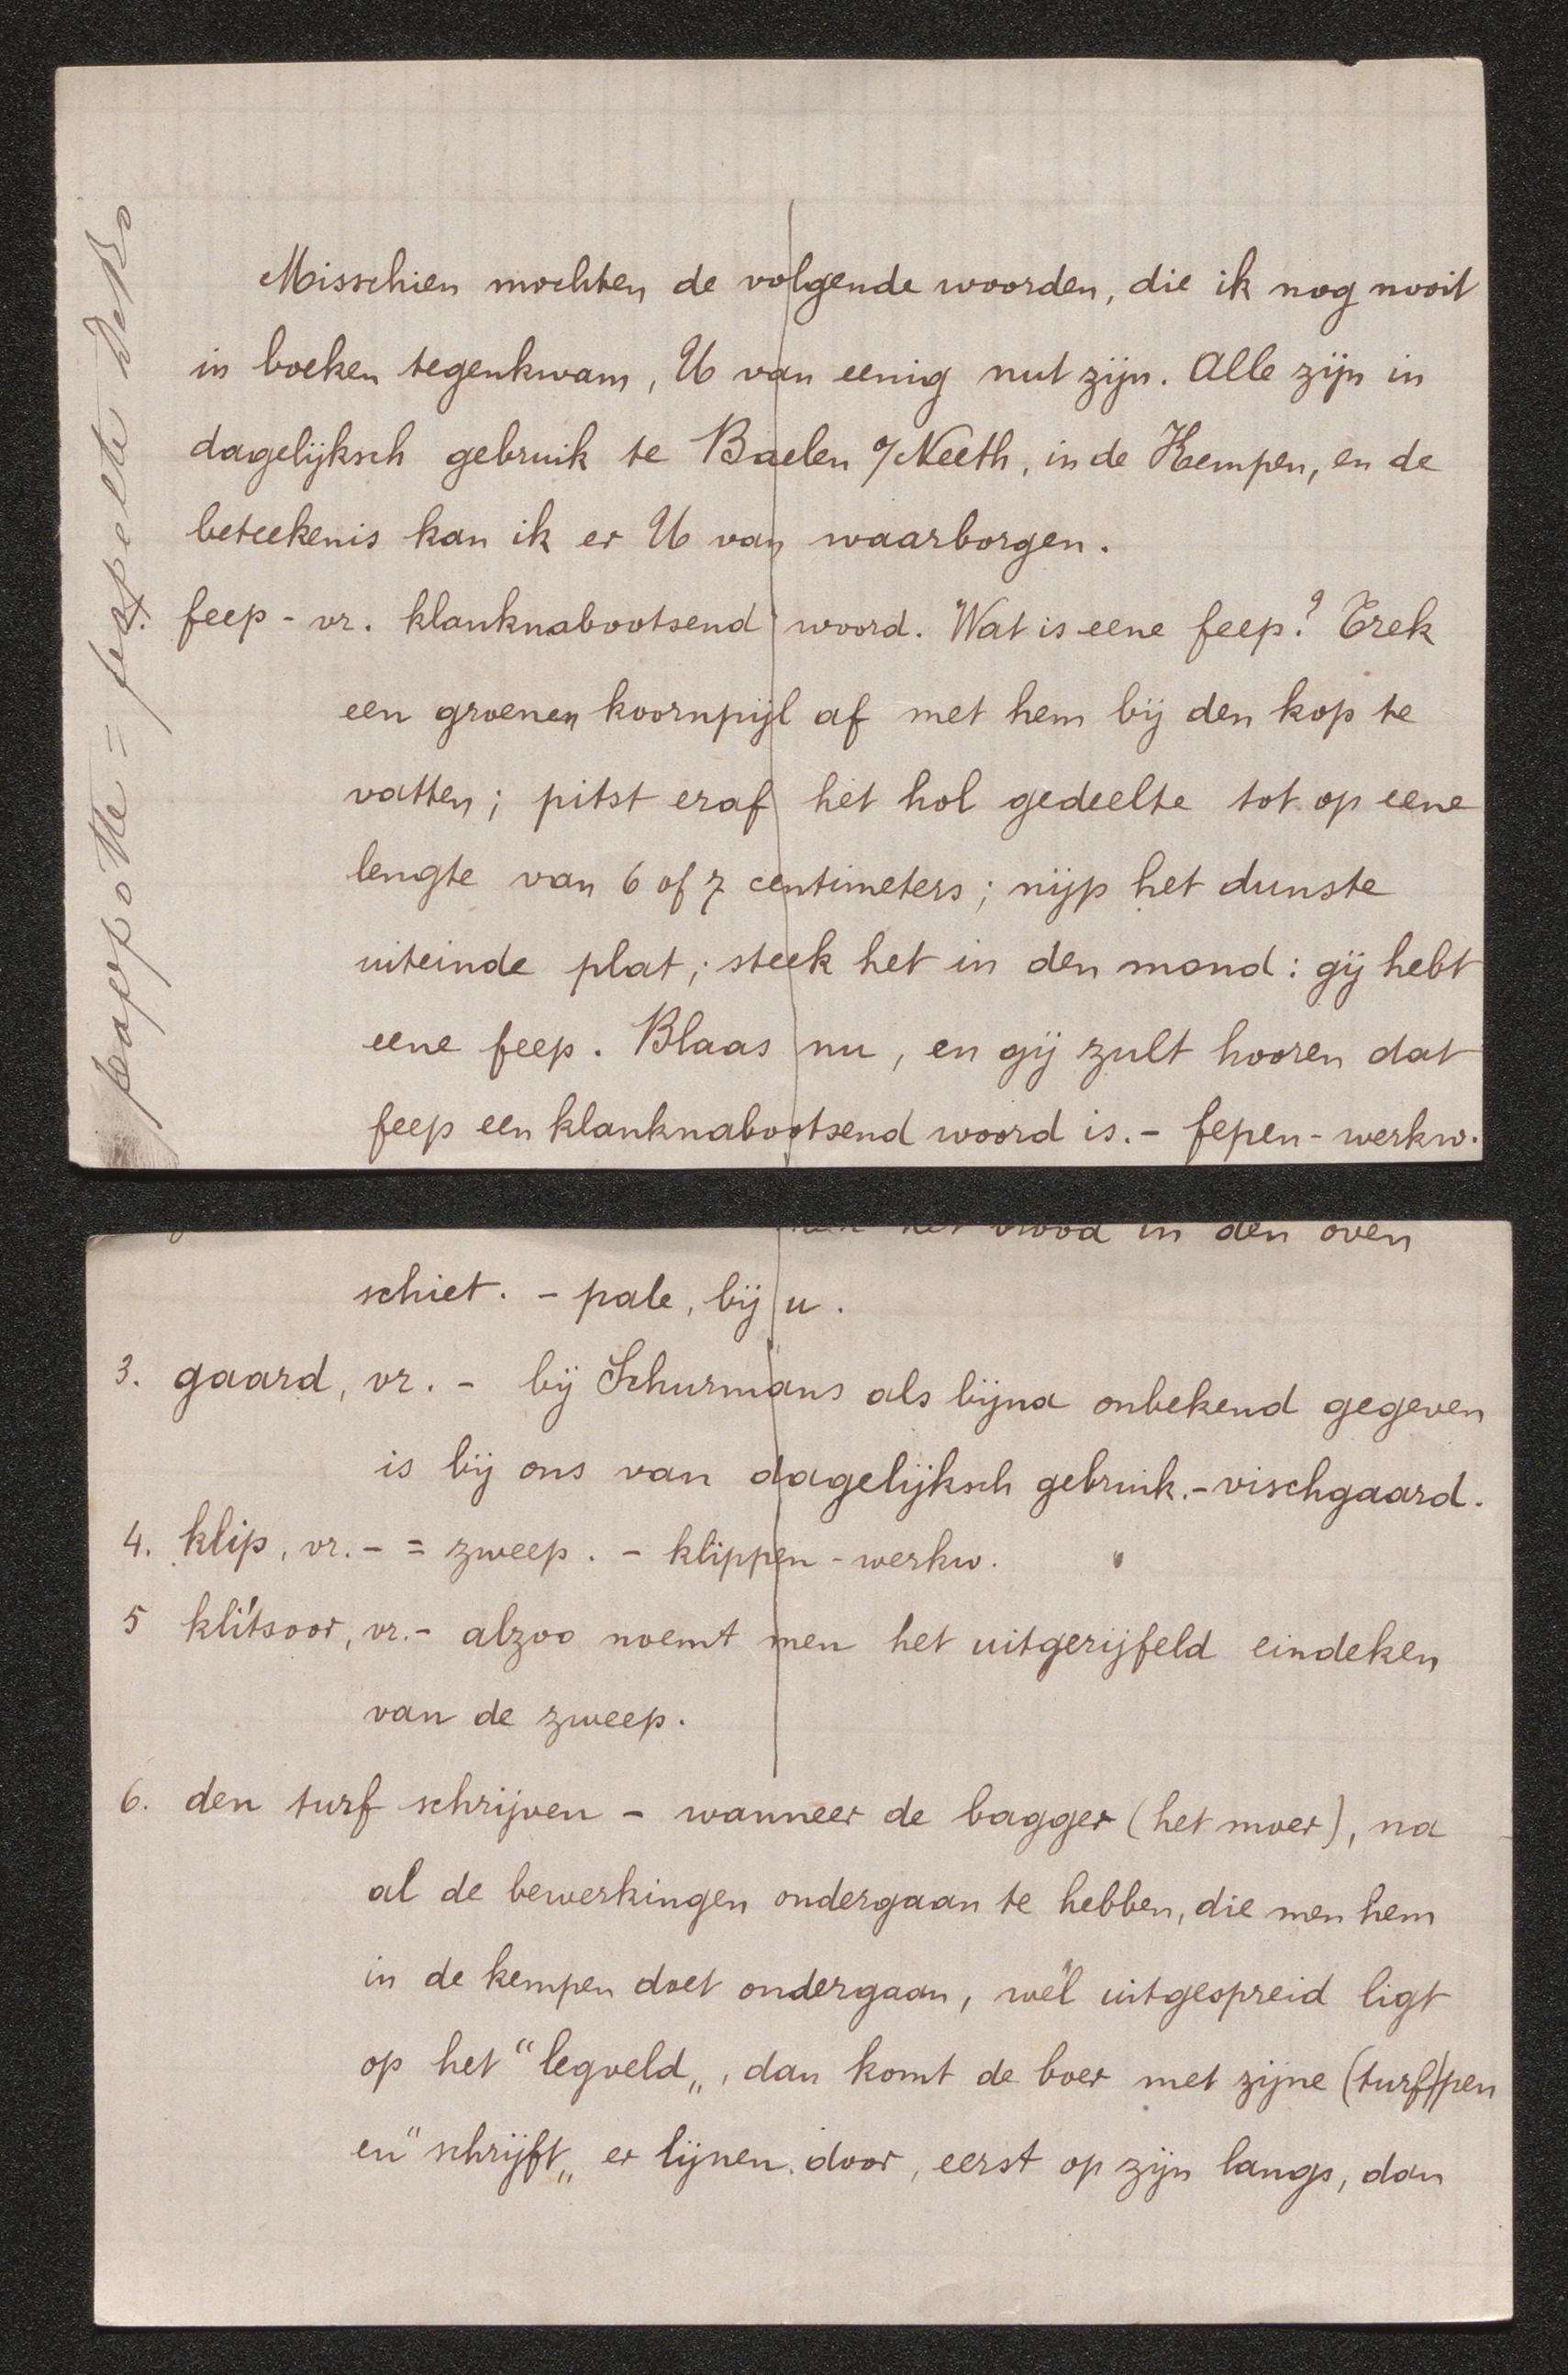 Misschien mochten de volgende woorden, die ik nog nooit
in boeken tegenkwam, U van eenig nut zijn. Alle zijn in
dagelijksch gebruik te Baelen o/Neeth, in de Kempen, en de
beteekenis kan ik er U van waarborgen.
1. feep - vr. klanknabootsend woord. Wat is eene feep? Trek
een groenen koornpijl af met hem bij den kop te
vatten; pitst eraf het hol gedeelte tot op eene
lengte van 6 of 7 centimeters; nijp het dunste
uiteinde plat; steek het in den mond: gij hebt
eene feep. Blaas nu, en gij zult hooren dat
feep een klanknabootsend woord is. - fepen - werkw.
pappotte =
brood in den oven
schiet. - pale, bij u.
3. gaard, vr. - bij Schurmans als bijna onbekend gegeven
is bij ons van dagelijksch gebruik. - vischgaard.
4. klip, vr. - = zweep. - klippen - werkw.
5 klítsoor, vr. - alzoo noemt men het uitgerijfeld eindeken
van de zweep.
6. den turf schrijven - wanneer de bagger (het moer), na
al de bewerkingen ondergaan te hebben, die men hem
in de kempen doet ondergaan, wél uitgespreid ligt
op het "legveld„, dan komt de boer met zijne (turf)pen
en "schrijft„ er lijnen door, eerst op zijn langs, dan